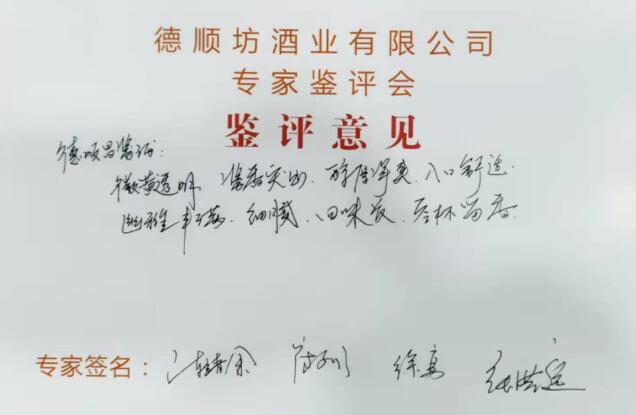 德顺坊酒业有限公司
专家鉴评会
鉴评意见
德顺昌酱酒:
微黄透明、酱香突出、醇厚净爽、入口舒适、
幽雅丰满、细腻、回味长、空杯留香
专家签名: